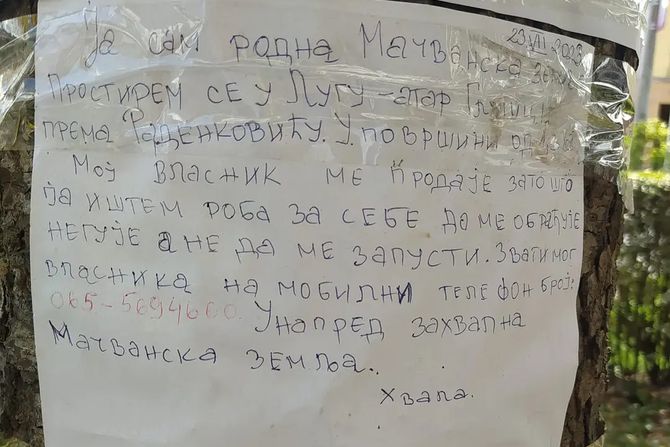 23 VII 2023
Ја сам родна Мачванска
Простирем се у Лугу - атар
према Раденковићу. у површини од
Мој власник ме продаје зато што
ја иштем роба за себе да ме обрађује
негује а не да ме запусти. Звати мог
власника на мобилни телефон број:
065-5694660. Унапред захвална
Мачванска земља.
Хвала.